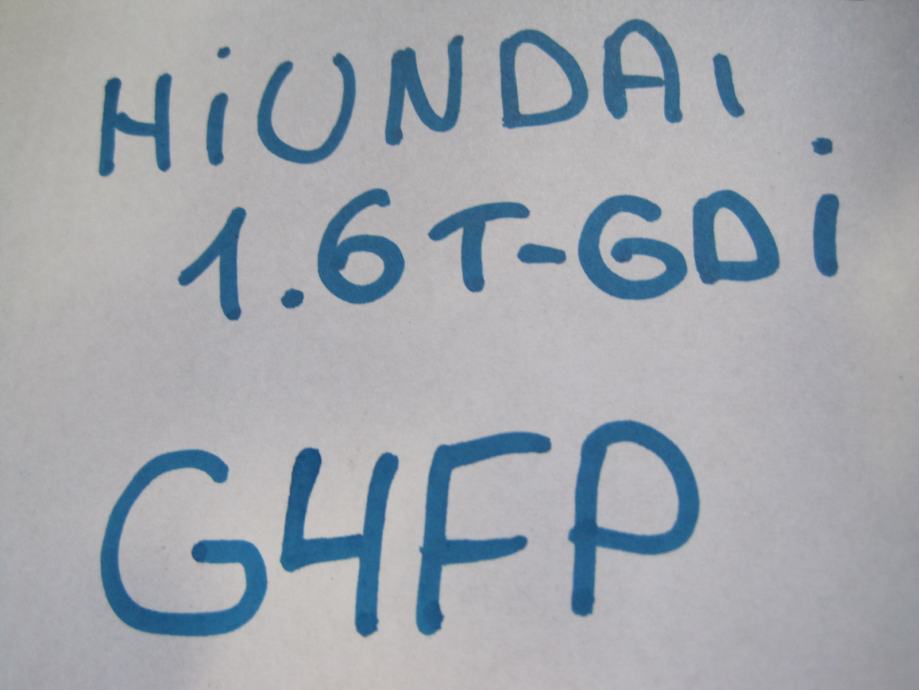 HiUNDAi
1.6 T-GDi
G4FP